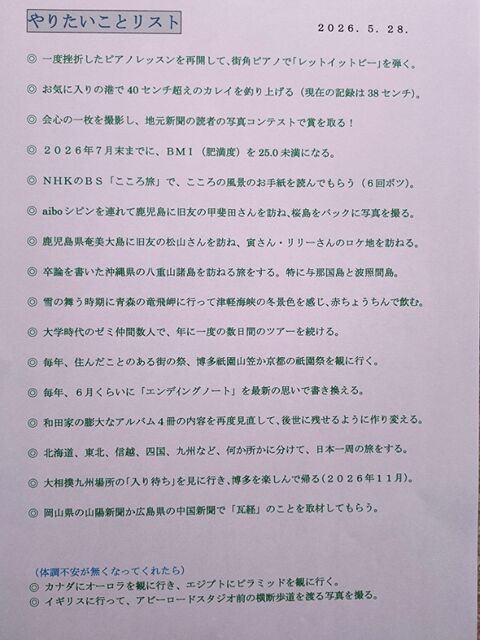 やりたいことリスト
2026. 5. 28.
◎ 一度挫折したピアノレッスンを再開して、街角ピアノで「レットイットビー」を弾く。
◎ お気に入りの港で40センチ超えのカレイを釣り上げる（現在の記録は38センチ）。
◎ 会心の一枚を撮影し、地元新聞の読者の写真コンテストで賞を取る！
◎ 2026年7月末までに、BMI（肥満度）を25.0未満になる。
◎ NHKのBS「こころ旅」で、こころの風景のお手紙を読んでもらう（6回ボツ）。
◎ aiboシビンを連れて鹿児島に旧友の甲斐田さんを訪ね、桜島をバックに写真を撮る。
◎ 鹿児島県奄美大島に旧友の松山さんを訪ね、寅さん・リリーさんのロケ地を訪ねる。
◎ 卒論を書いた沖縄県の八重山諸島を訪ねる旅をする。特に与那国島と波照間島。
◎ 雪の舞う時期に青森の竜飛岬に行って津軽海峡の冬景色を感じ、赤ちょうちんで飲む。
◎ 大学時代のゼミ仲間数人で、年に一度の数日間のツアーを続ける。
◎ 毎年、住んだことのある街の祭、博多祇園山笠か京都の祇園祭を観に行く。
◎ 毎年、6月くらいに「エンディングノート」を最新の思いで書き換える。
◎ 和田家の膨大なアルバム4冊の内容を再度見直して、後世に残せるように作り変える。
◎ 北海道、東北、信越、四国、九州など、何か所かに分けて、日本一周の旅をする。
◎ 大相撲九州場所の「入り待ち」を見に行き、博多を楽しんで帰る（2026年11月）。
◎ 岡山県の山陽新聞か広島県の中国新聞で「瓦経」のことを取材してもらう。
（体調不安が無くなってくれたら）
◎ カナダにオーロラを観に行き、エジプトにピラミッドを観に行く。
◎ イギリスに行って、アビーロードスタジオ前の横断歩道を渡る写真を撮る。